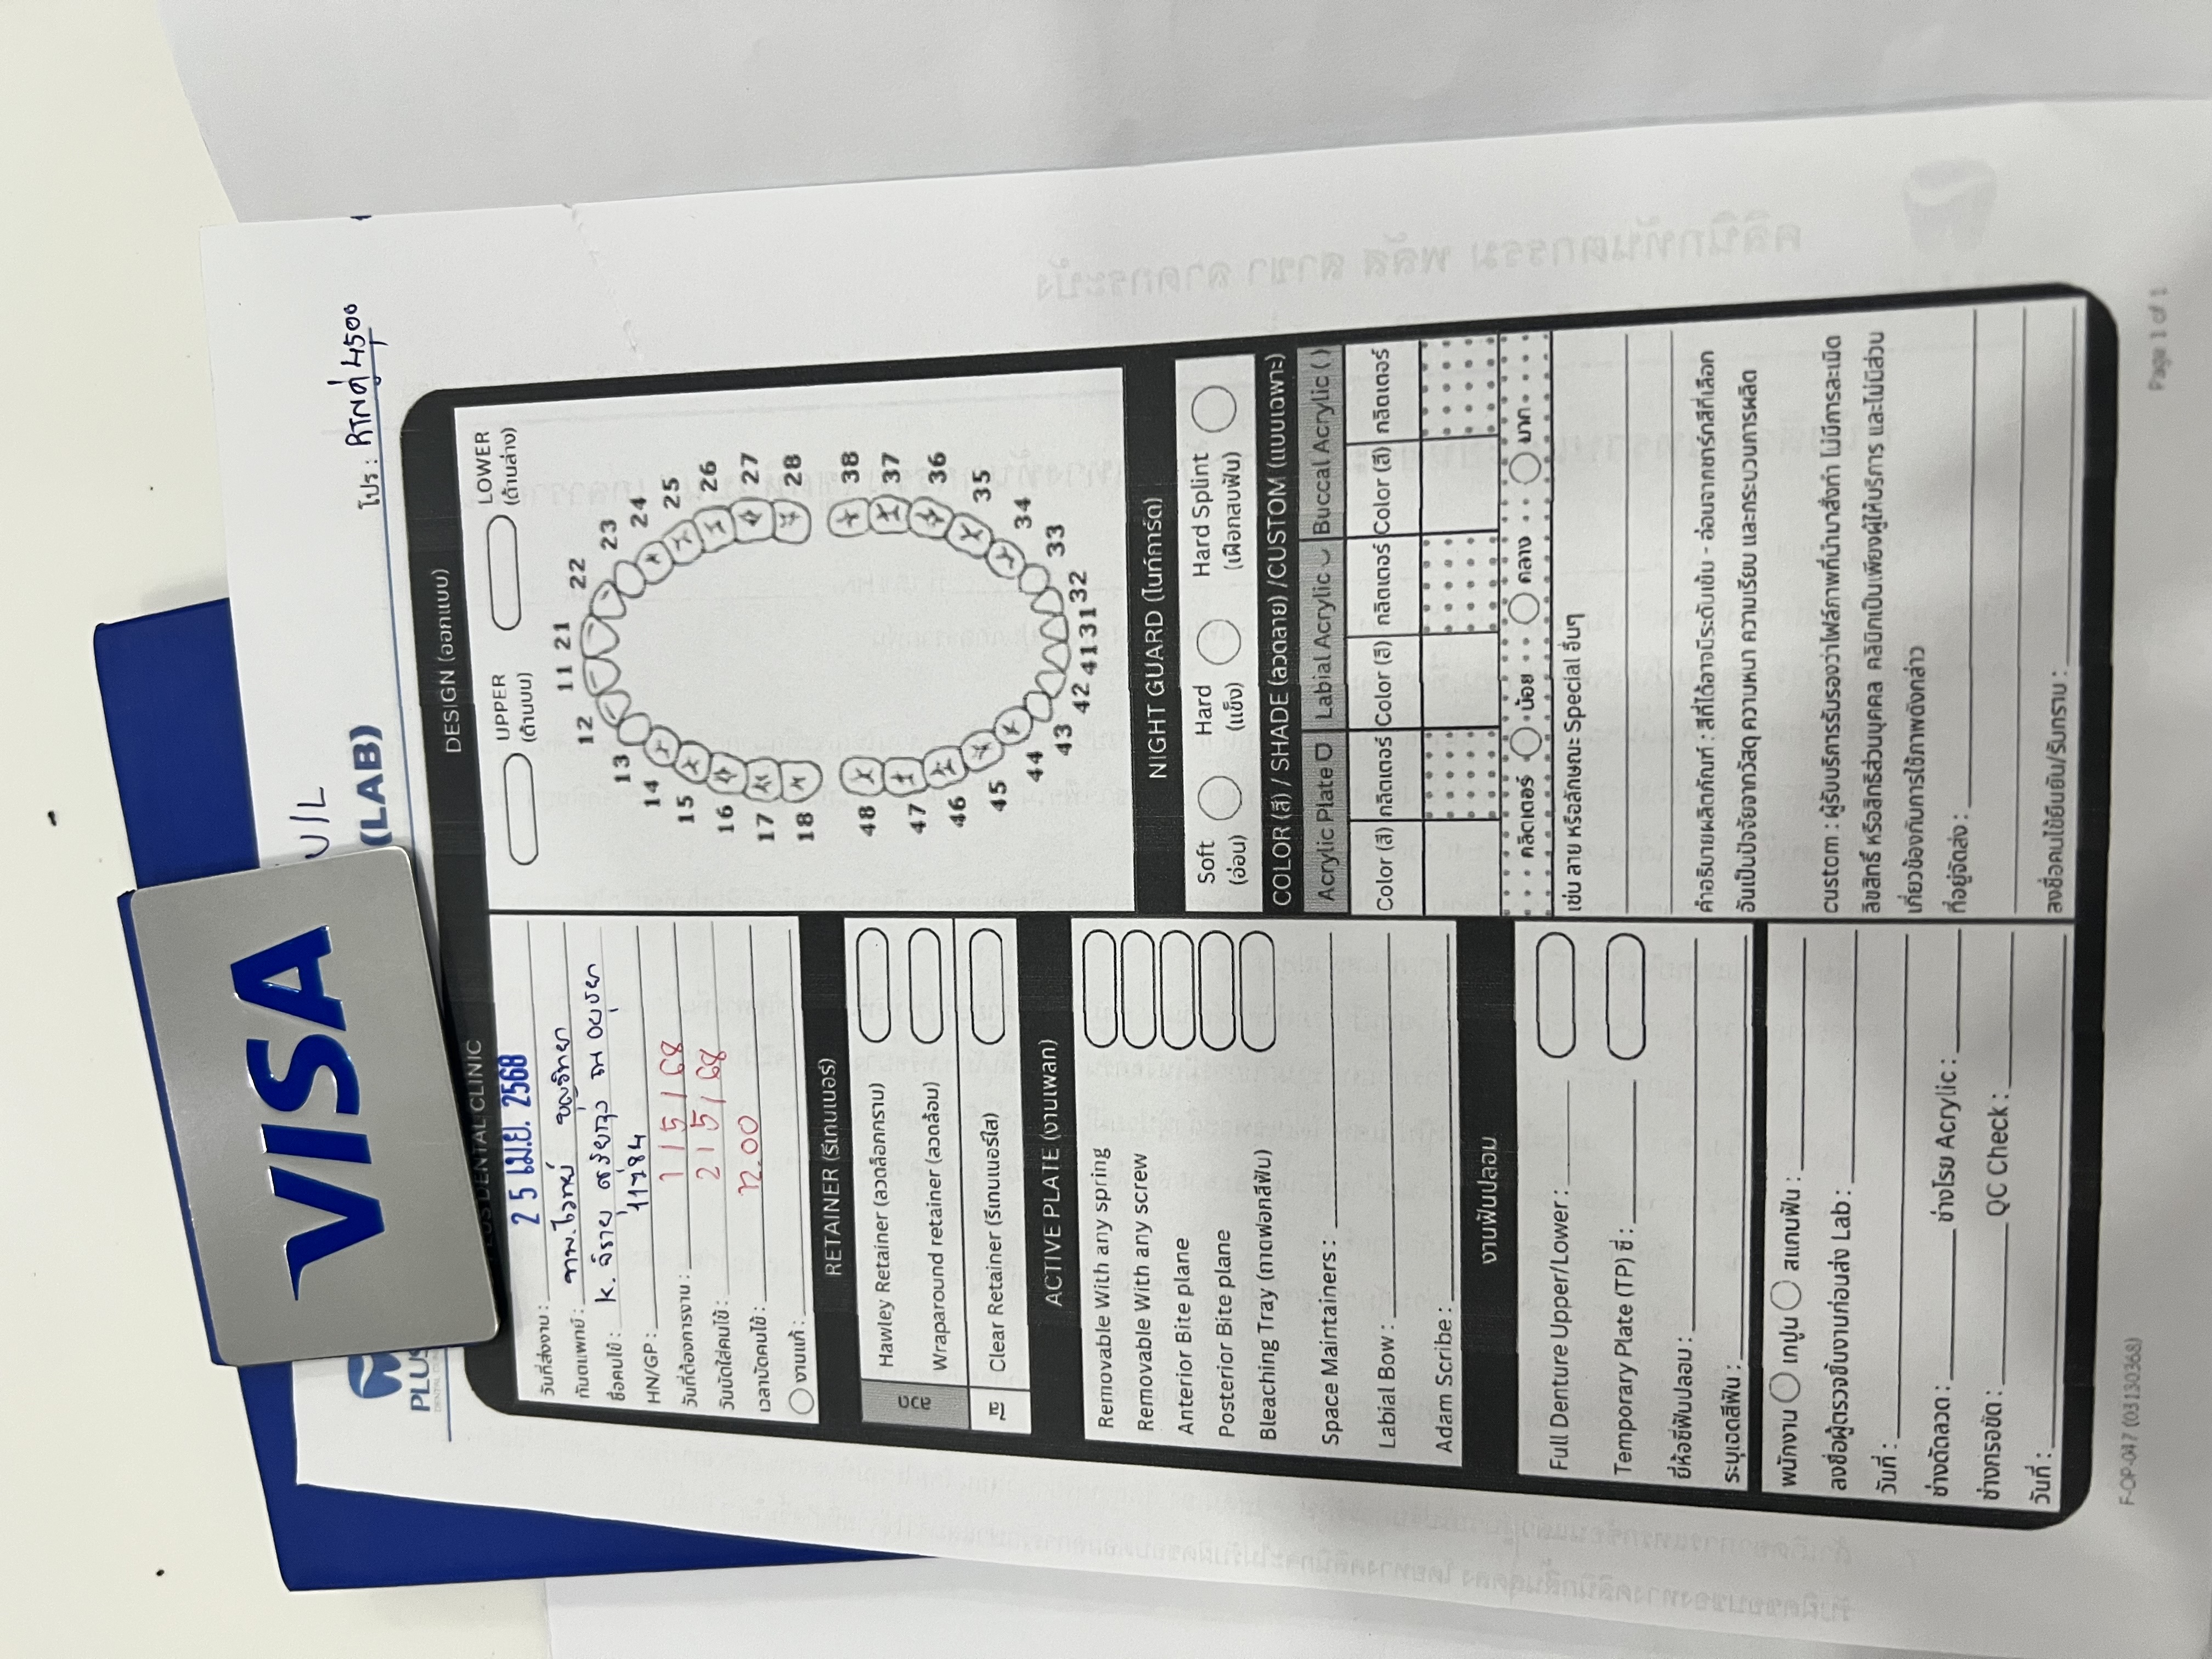 VISA
U/L
(LAB)
โปร : RTNคู่ 4,500
PLUS
DENTAL CLINIC
PLUS DENTAL CLINIC
วันที่ส่งงาน : 25 เม.ย. 2568
ทันตแพทย์ : ทพ.ไวทย์
ชื่อคนไข้ : K. จิรายุ ณ อยุธยา
HN/GP : 11784
วันที่ต้องการงาน : 1/5/68
วันนัดใส่คนไข้ : 2/5/68
เวลานัดคนไข้ : 12.00
งานแก้ :
RETAINER (รีเทนเนอร์)
ลวด
Hawley Retainer (ลวดล็อกกราม)
Wraparound retainer (ลวดล้อม)
ใส
Clear Retainer (รีเทนเนอร์ใส)
ACTIVE PLATE (งานเพลท)
Removable With any spring
Removable With any screw
Anterior Bite plane
Posterior Bite plane
Bleaching Tray (ถาดฟอกสีฟัน)
Space Maintainers :
Labial Bow :
Adam Scribe :
งานฟันปลอม
Full Denture Upper/Lower :
Temporary Plate (TP) ซี่ :
ยี่ห้อซี่ฟันปลอม :
ระบุเฉดสีฟัน :
พนักงาน เทปูน สแกนฟัน :
ลงชื่อผู้ตรวจชิ้นงานก่อนส่ง Lab :
วันที่ :
ช่างดัดลวด : ช่างโรย Acrylic :
ช่างกรอขัด : QC Check :
วันที่ :
DESIGN (ออกแบบ)
UPPER
(ด้านบน)
LOWER
(ด้านล่าง)
11 21
12 22
13 23
14 24
15 25
16 26
17 27
18 28
48 38
47 37
46 36
45 35
44 34
43 33
42 41 31 32
NIGHT GUARD (ไนท์การ์ด)
Soft
(อ่อน)
Hard
(แข็ง)
Hard Splint
(เฝือกสบฟัน)
COLOR (สี) / SHADE (ลวดลาย) /CUSTOM (แบบเฉพาะ)
Acrylic Plate Labial Acrylic Buccal Acrylic ( )
Color (สี) กลิตเตอร์ Color (สี) กลิตเตอร์ Color (สี) กลิตเตอร์
กลิตเตอร์ น้อย กลาง มาก
เช่น ลาย หรือลักษณะ Special อื่นๆ
คำอธิบายผลิตภัณฑ์ : สีที่ได้อาจมีระดับเข้ม - อ่อนจากชาร์ทสีที่เลือก
อันเป็นปัจจัยจากวัสดุ ความหนา ความเรียบ และกระบวนการผลิต
custom : ผู้รับบริการรับรองว่าไฟล์ภาพที่นำมาสั่งทำ ไม่มีการละเมิด
ลิขสิทธิ์ หรือสิทธิส่วนบุคคล คลินิกเป็นเพียงผู้ให้บริการ และไม่มีส่วน
เกี่ยวข้องกับการใช้ภาพดังกล่าว
ที่อยู่จัดส่ง :
ลงชื่อคนไข้ยืนยัน/รับทราบ :
F-OP-047 (03130368)
Page 1 of 1